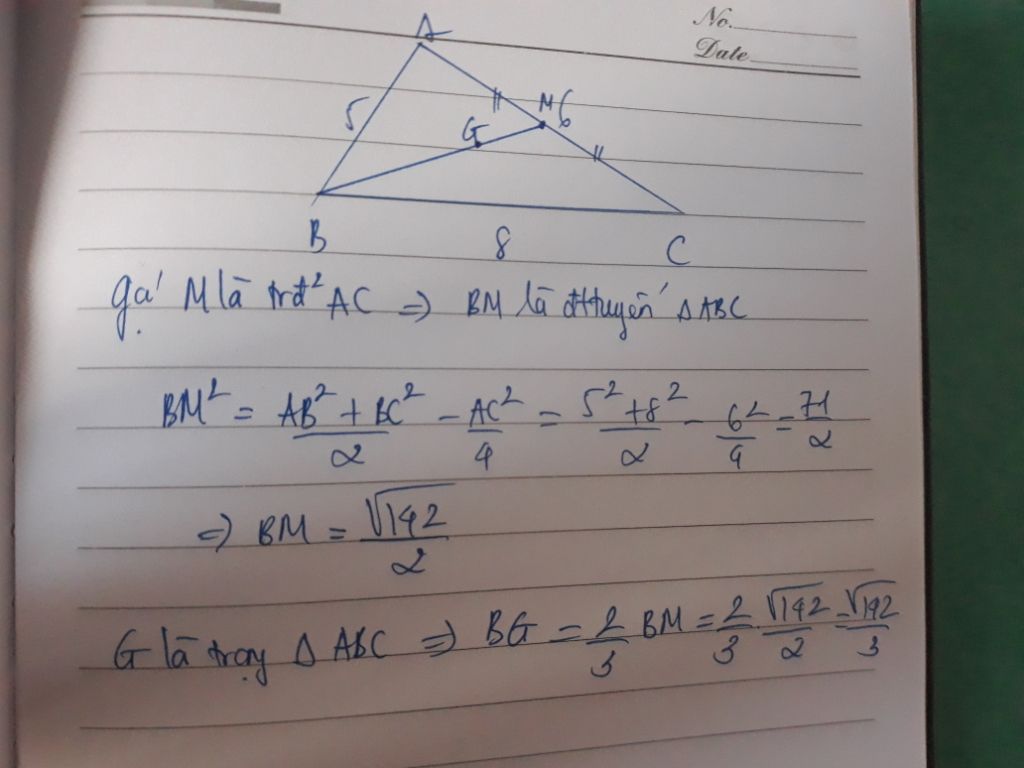 No.
Date
A
5
M 6
G
B
8
C
Gọi M là trđ² AC => BM là đttuyến ΔABC
BM² = (AB² + BC²)/2 - AC²/4 = (5² + 8²)/2 - 6²/4 = 71/2
=> BM = √142/2
G là trọng Δ ABC => BG = 2/3 BM = 2/3 . √142/2 = √142/3